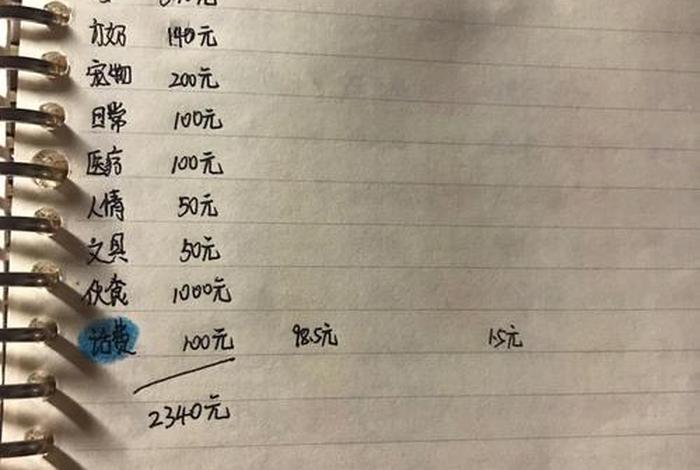 140元
宠物 200元
日常 100元
医疗 100元
人情 50元
文具 50元
伙食 1000元
话费 100元 98.5元 1.5元
2340元